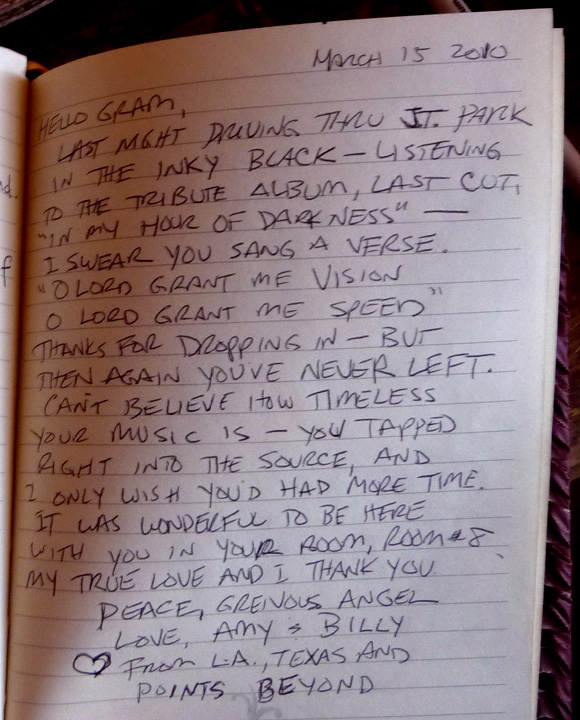 MARCH 15 2010
HELLO GRAM,
LAST NIGHT DRIVING THRU JT. PARK
IN THE INKY BLACK — LISTENING
TO THE TRIBUTE ALBUM, LAST CUT,
"IN MY HOUR OF DARKNESS" —
I SWEAR YOU SANG A VERSE.
"O LORD GRANT ME VISION
O LORD GRANT ME SPEED"
THANKS FOR DROPPING IN — BUT
THEN AGAIN YOU'VE NEVER LEFT.
CAN'T BELIEVE HOW TIMELESS
YOUR MUSIC IS — YOU TAPPED
RIGHT INTO THE SOURCE, AND
I ONLY WISH YOU'D HAD MORE TIME.
IT WAS WONDERFUL TO BE HERE
WITH YOU IN YOUR ROOM, ROOM #8.
MY TRUE LOVE AND I THANK YOU
PEACE, GREIVOUS ANGEL
LOVE, AMY & BILLY
♡ FROM L.A., TEXAS AND
POINTS BEYOND